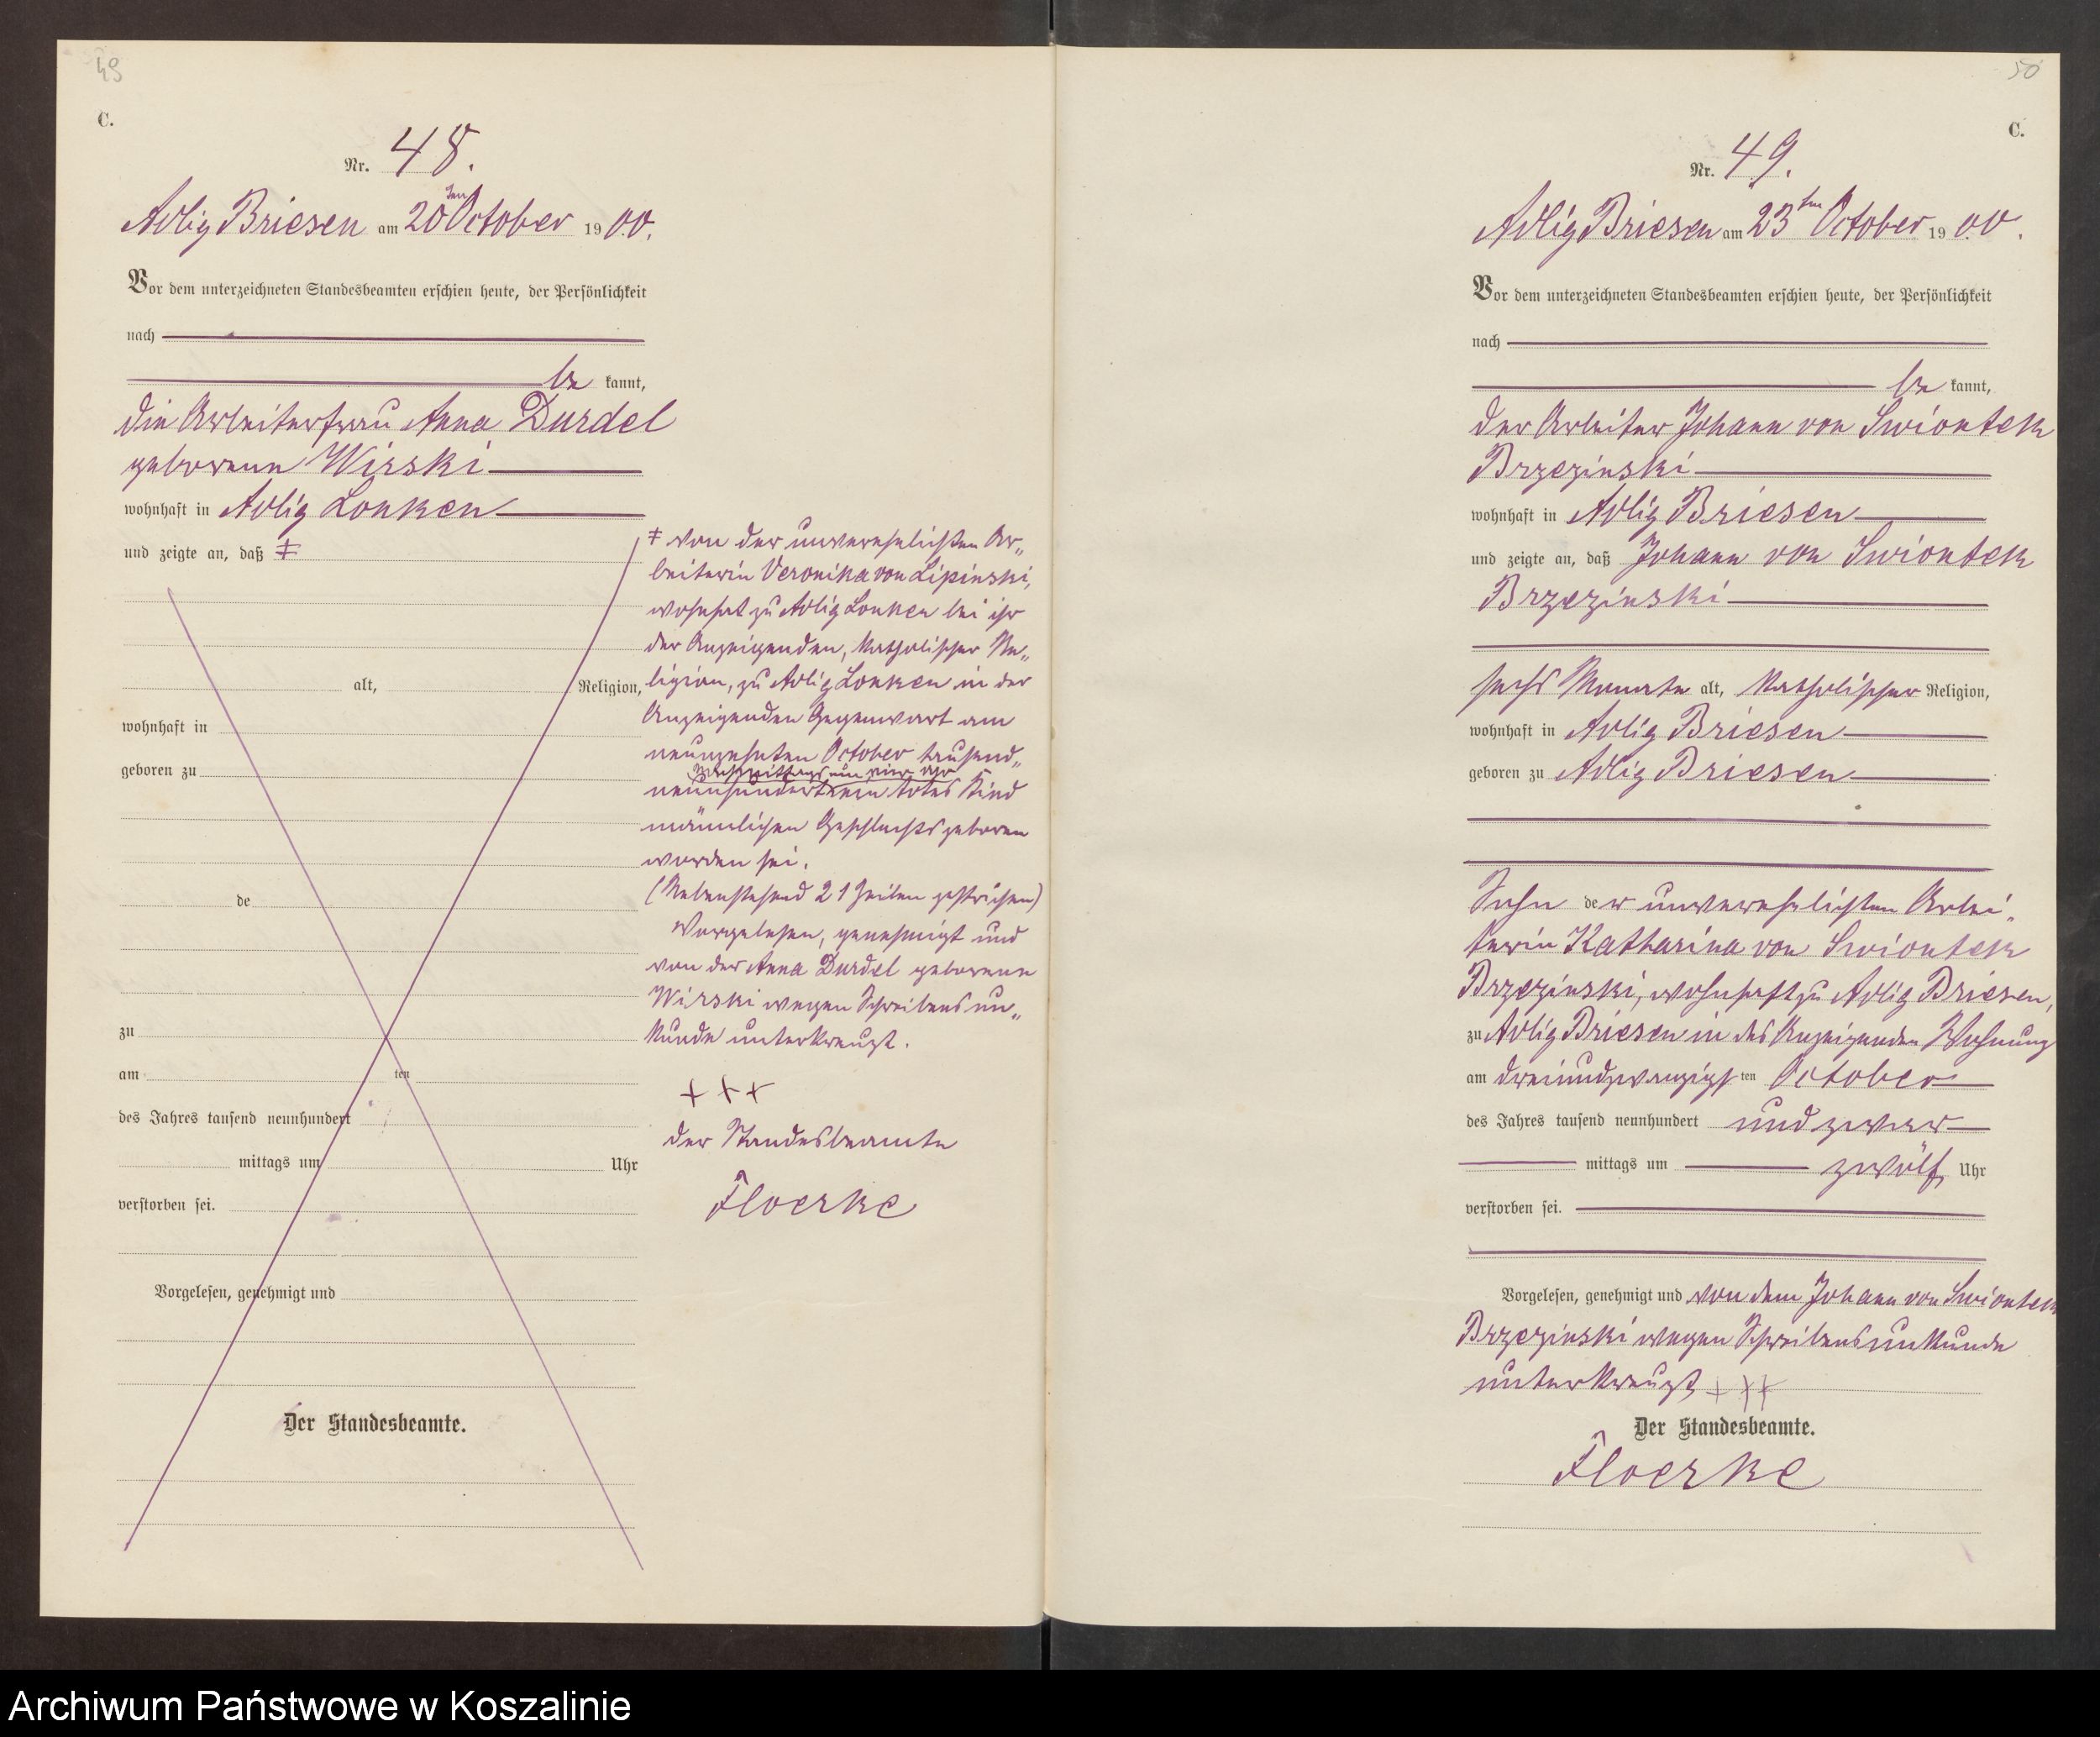 49
C.
Nr. 48.
Adlig Briesen am 20ten October 1900.
Vor dem unterzeichneten Standesbeamten erschien heute, der Persönlichkeit
nach
be kannt,
die Arbeiterfrau Anna Durdel
geborene Wirski
wohnhaft in Adlig Lonken
und zeigte an, daß ‡
alt, Religion,
wohnhaft in
geboren zu
de
zu
am ten
des Jahres tausend neunhundert
mittags um Uhr
verstorben sei.
Vorgelesen, genehmigt und
Der Standesbeamte.
‡ von der unverehelichten Ar„
beiterin Veronika von Lipinski,
wohnhat zu Adlig Lonken bei ihr
der Anzeigenden, katholischer Re„
ligion, zu Adlig Lonken in der
Anzeigenden Gegenwart am
neunzehnten October tausend„
neunhundert Nachmittags um vier Uhr ein totes Kind
männlichen Geschlechts geboren
worden sei.
(Nebenstehend 21 Zeilen gestrichen)
Vorgelesen, genehmigt und
von der Anna Durdel geborene
Wirski wegen Schreibensun„
kunde unterkreuzt.
+++
der Standesbeamte
Floerke
50
C.
Nr. 49.
Adlig Briesen am 23ten October 1900.
Vor dem unterzeichneten Standesbeamten erschien heute, der Persönlichkeit
nach
be kannt,
der Arbeiter Johann von Swiontek
Brzezinski
wohnhaft in Adlig Briesen
und zeigte an, daß Johann von Swiontek
Brzezinski
sechs Monate alt, katholischer Religion,
wohnhaft in Adlig Briesen
geboren zu Adlig Briesen
Sohn der unverehelichten Arbei„
terin Katharina von Swiontek
Brzezinski, wohnhaft zu Adlig Briesen,
zu Adlig Briesen in des Anzeigenden Wohnung
am dreiundzwanzigsten October
des Jahres tausend neunhundert und zwar
mittags um zwölf Uhr
verstorben sei.
Vorgelesen, genehmigt und von dem Johann von Swiontek
Brzezinski wegen Schreibensunkunde
unterkreuzt +++
Der Standesbeamte.
Floerke
Archiwum Państwowe w Koszalinie